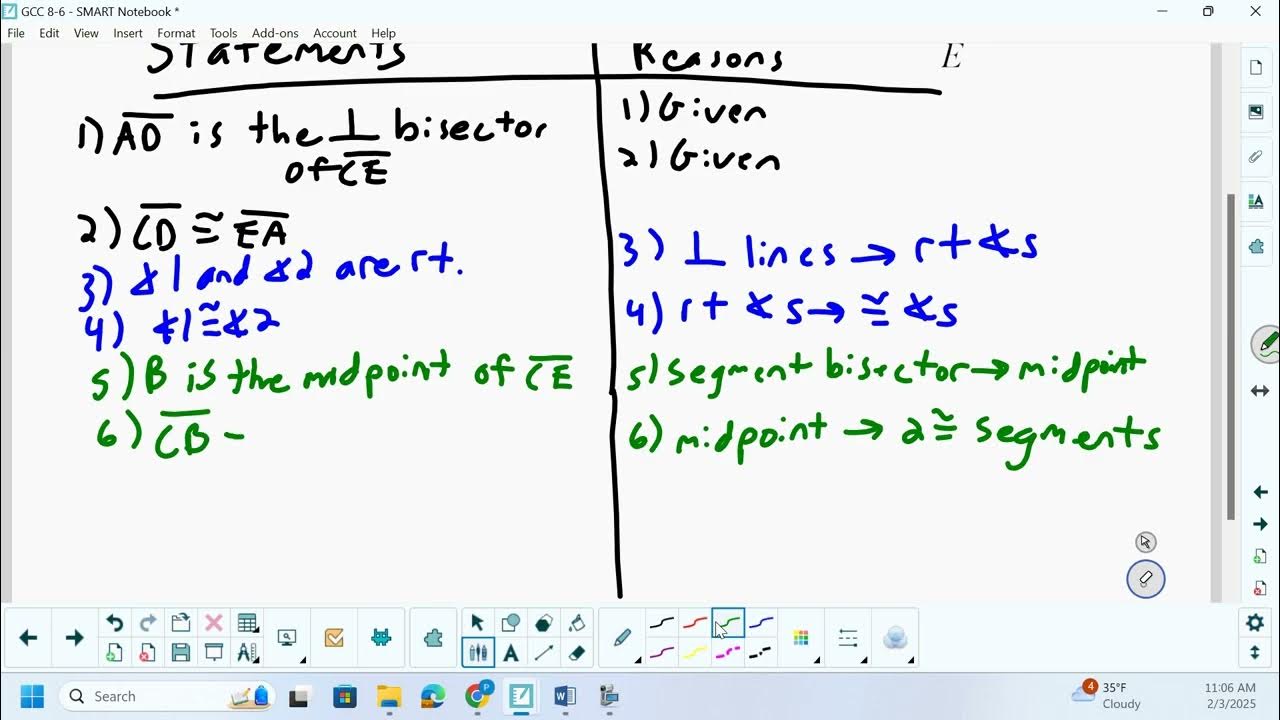 GCC 8-6 - SMART Notebook *
File Edit View Insert Format Tools Add-ons Account Help
Statements Reasons E
1) A̅D̅ is the ⊥ bisector of C̅E̅
1) Given
2) Given
2) C̅D̅ ≅ E̅A̅
3) ∡1 and ∡2 are rt.
3) ⊥ lines → rt ∡s
4) ∡1≅∡2
4) rt ∡s → ≅ ∡s
5) B is the midpoint of C̅E̅
5) segment bisector → midpoint
6) C̅B̅ -
6) midpoint → 2 ≅ segments
Search
4
35°F
Cloudy
11:06 AM
2/3/2025